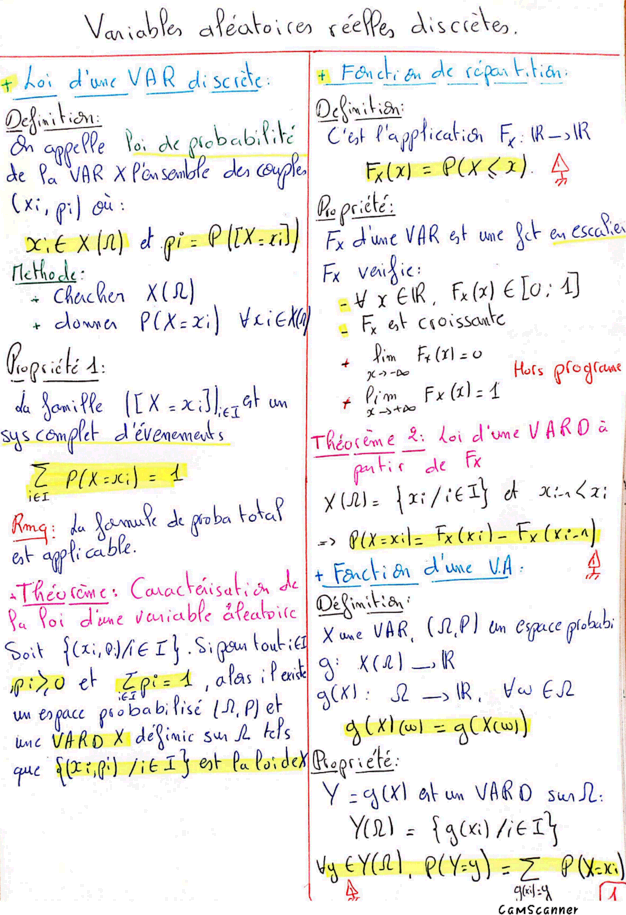 Variables aléatoires réelles discrètes.
+ Loi d'une VAR discrète:
Définition:
On appelle loi de probabilité
de la VAR X l'ensemble des couples
(xi, pi) où :
xi ∈ X(Ω) et pi = P([X=xi])
Methode:
+ Chercher X(Ω)
+ donner P(X=xi) ∀xi∈X(Ω)
Propriété 1:
La famille ([X=xi])i∈I est un
sys complet d'évenements
∑ P(X=xi) = 1
i∈I
Rmq: La formule de proba total
est applicable.
Théorème: Caractérisation de
la loi d'une variable aléatoire
Soit {(xi,pi)/i∈I}. Si pour tout i∈I
pi≥0 et ∑pi=1, alors il existe
i∈I
un espace probabilisé (Ω,P) et
une VARD X définie sur Ω tels
que {(xi,pi)/i∈I} est la loi de X
+ Fonction de répartition:
Définition:
C'est l'application Fx: IR → IR
Fx(x) = P(X≤x).
Propriété:
Fx d'une VAR est une fct en escalier
Fx verifie:
- ∀ x ∈ IR, Fx(x) ∈ [0;1]
- Fx est croissante
+ lim Fx(x)=0
x→-∞
Hors programe
+ lim Fx(x)=1
x→+∞
Théorème 2: Loi d'une VARD à
partir de Fx
X(Ω)= {xi/i∈I} et xi-1<xi
=> P(X=xi)= Fx(xi) - Fx(xi-1)
+ Fonction d'une V.A:
Définition:
X une VAR, (Ω,P) un espace probabi
g: X(Ω) → IR
g(X): Ω → IR, ∀ω∈Ω
g(X)(ω) = g(X(ω))
Propriété:
Y=g(X) est un VARD sur Ω:
Y(Ω) = {g(xi)/i∈I}
∀y∈Y(Ω), P(Y=y) = ∑ P(X=xi)
g(xi)=y
1
CamScanner